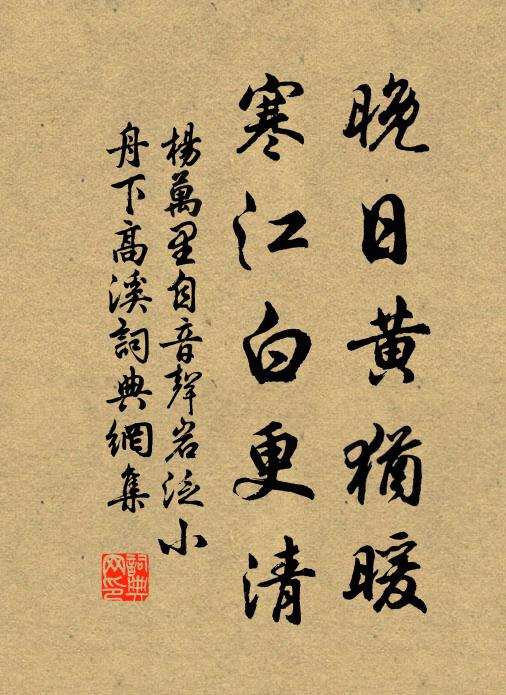 晚日黄猶暖
寒江白更清
楊萬里自音聲岩泛小
舟下高溪詞典網集
詞典
网印